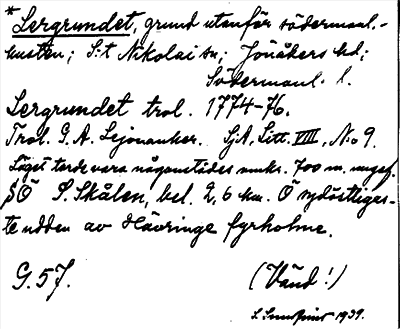 * Lergrundet, grund utanför södermanl.-
kusten; S:t Nikolai sn; Jönåkers hd;
Södermanl. l.
Lergrundet trol. 1774-76.
Trol. G. A. Lejonanker. SjA, Litt. VIII, No 9.
Läget torde vara någonstädes omkr. 700 m. ungef.
SÖ S. Skålen, bel. 2,6 km. Ö sydöstligas-
te udden av Hävringe fyrholme.
G. 57. (Vänd!)
1939.